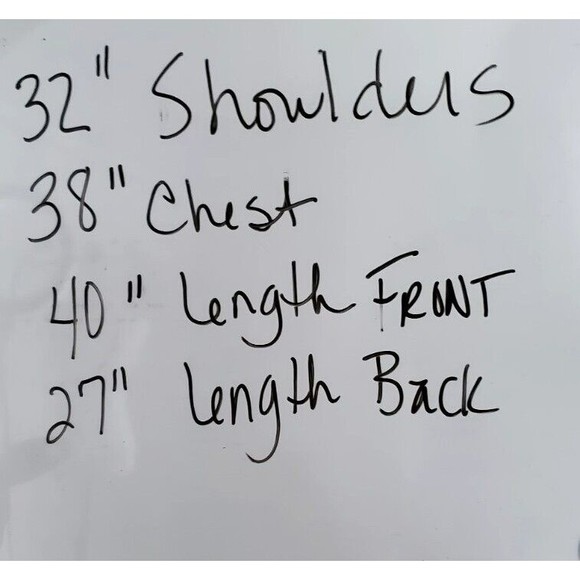 32" Shoulders
38" Chest
40" Length FRONT
27" Length Back